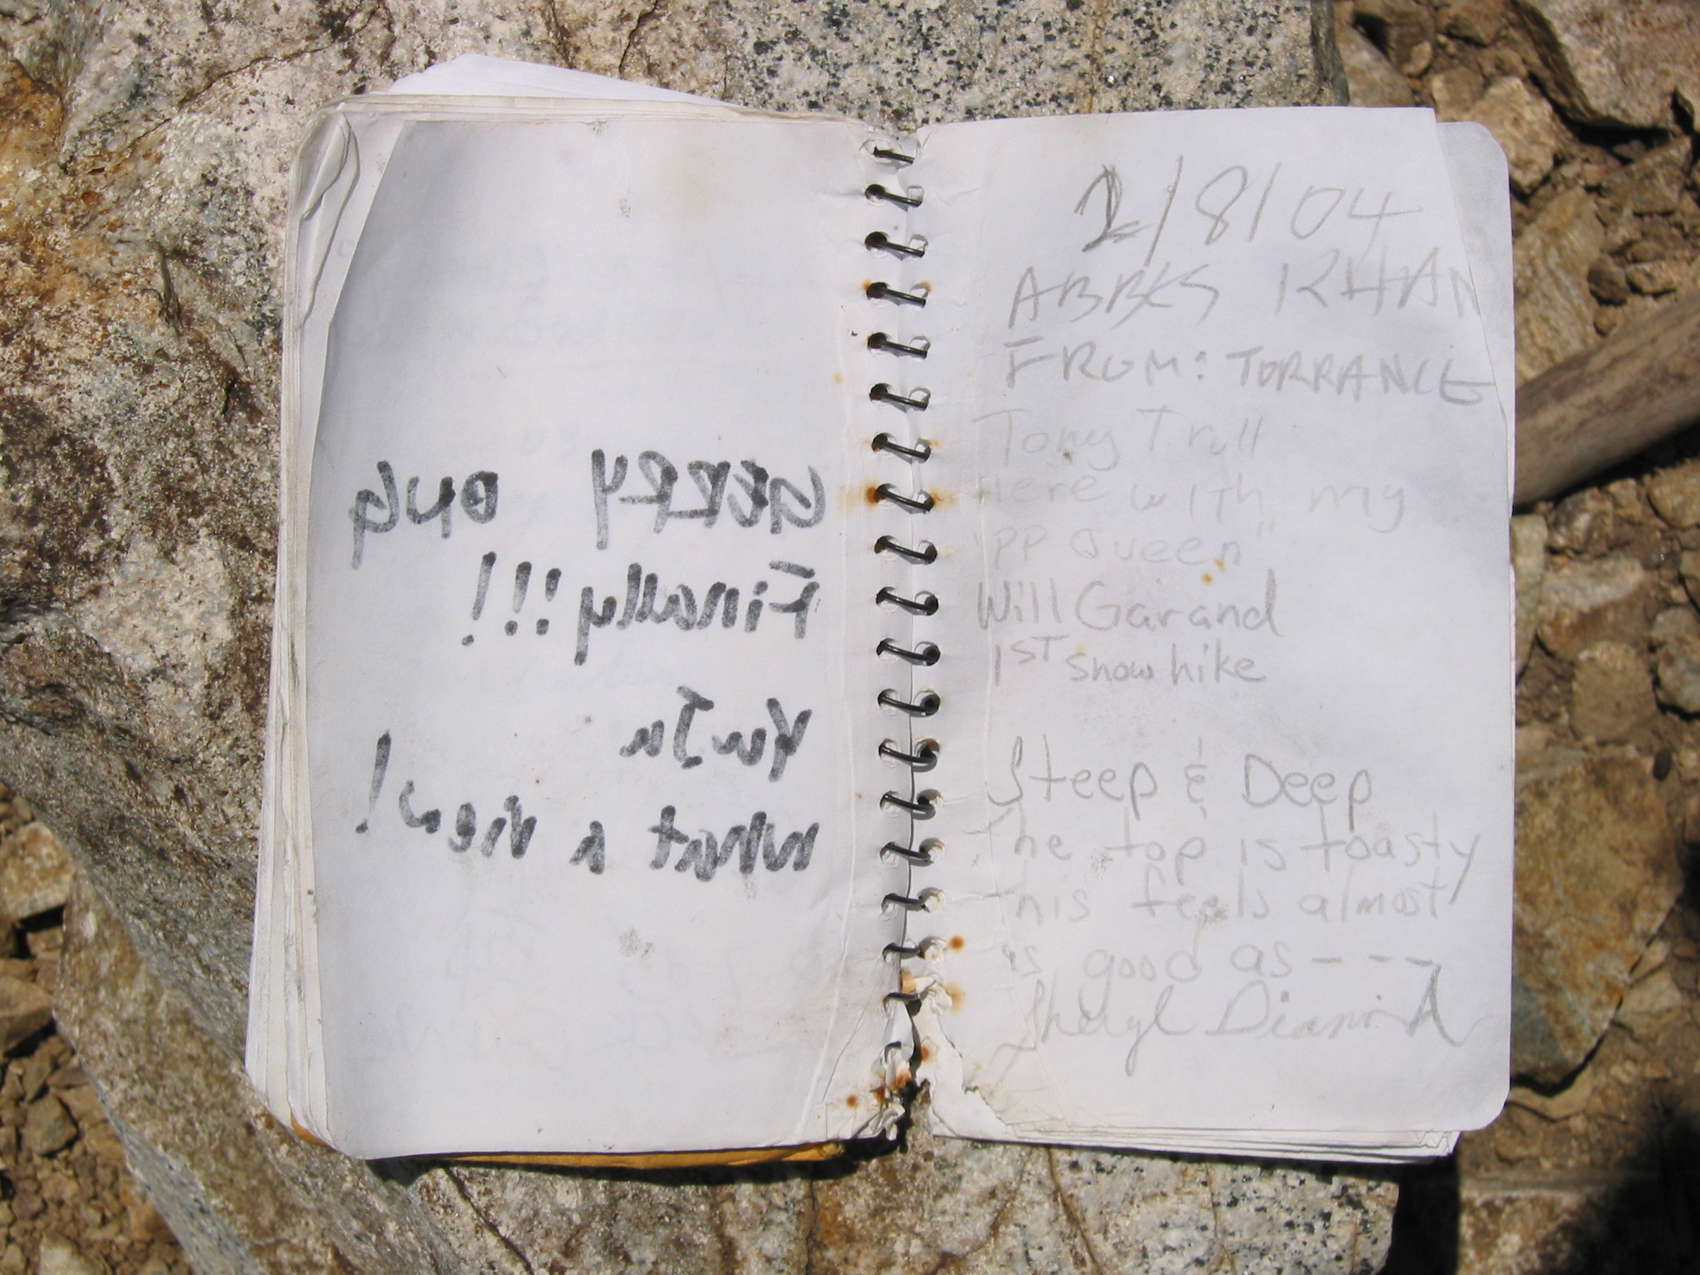 GERRY
Finally!!!
What a view!
1/8/04
ABBES KHAN
FROM: TORRANCE
Tony Troll
Here with my
"PP Queen"
Will Garand
1ST snow hike
Steep & Deep
The top is toasty
this feels almost
as good as ---
Sheryl Diamond